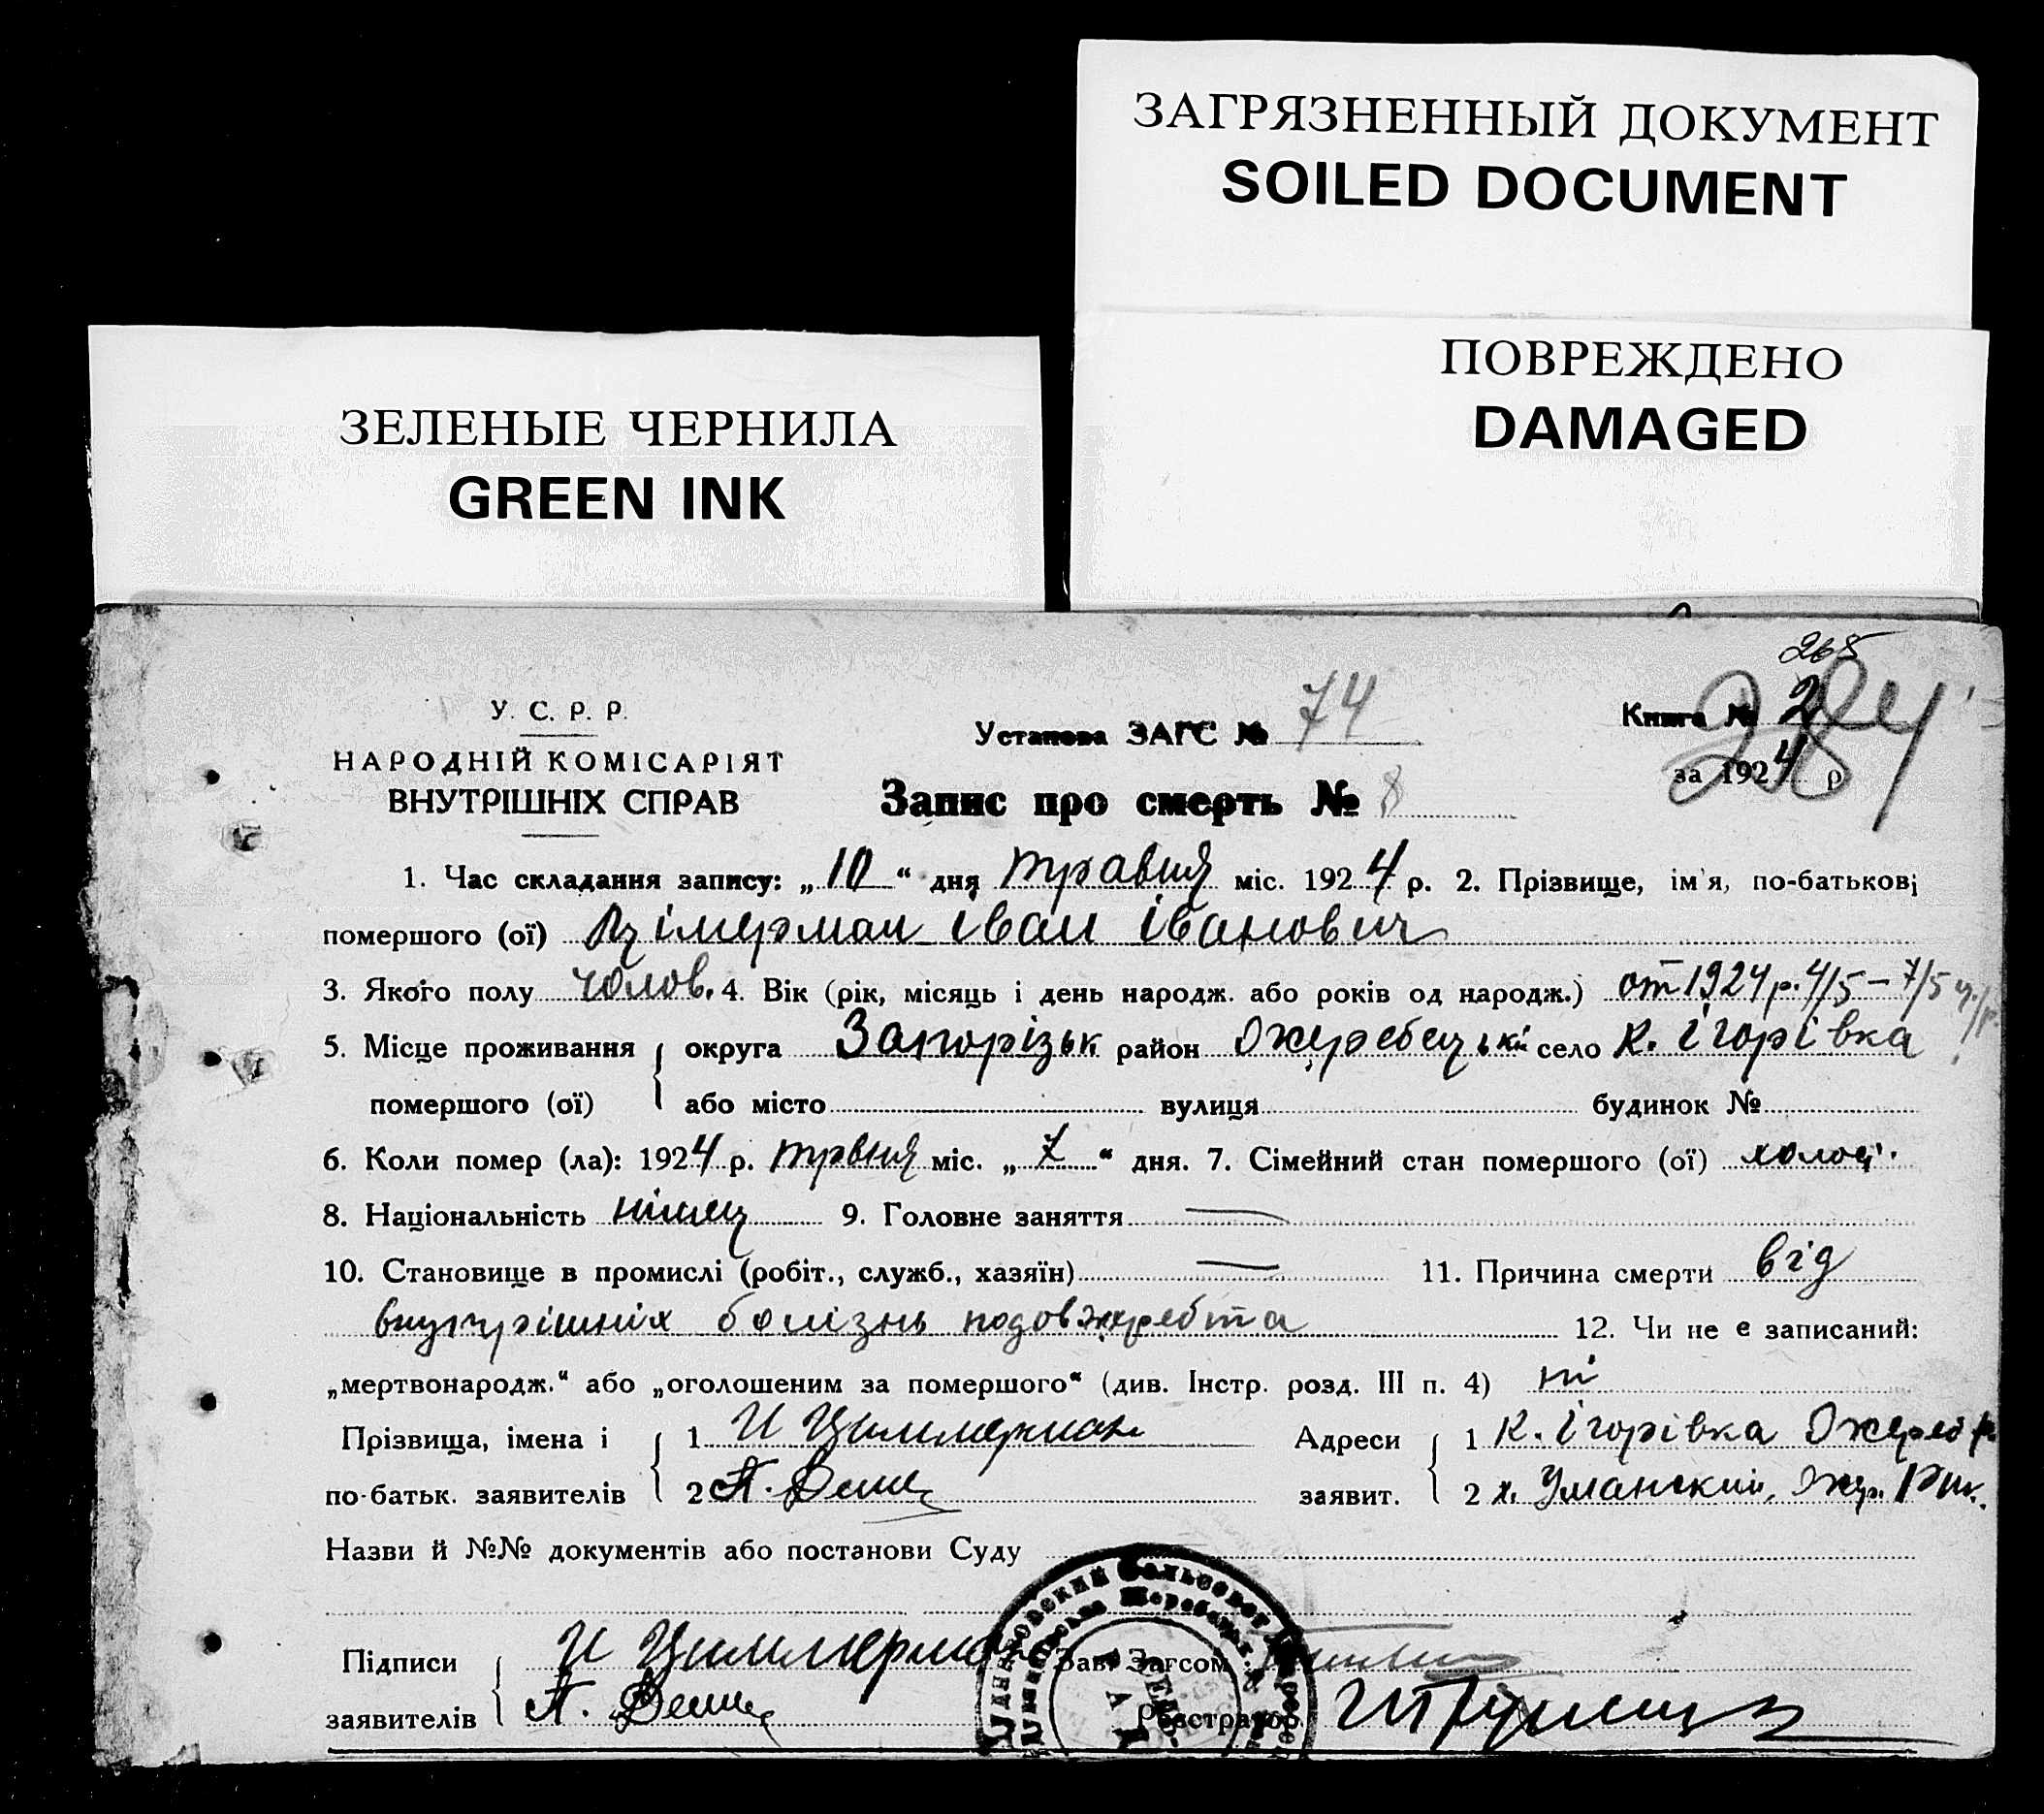 ЗАГРЯЗНЕННЫЙ ДОКУМЕНТ
SOILED DOCUMENT
ПОВРЕЖДЕНО
DAMAGED
ЗЕЛЕНЫЕ ЧЕРНИЛА
GREEN INK
265
284
У. С. Р. Р.
НАРОДНІЙ КОМІСАРІЯТ
ВНУТРІШНІХ СПРАВ
Установа ЗАГС № 74
Книга № 2
за 1924 р
Запис про смерть № 8
1. Час складання запису: „10“ дня травня міс. 1924 р. 2. Прізвище, ім'я, по-батькові
помершого (ої) Цімерман Іван Іванович
3. Якого полу чолов. 4. Вік (рік, місяць і день народж. або років од народж.) от 1924 р. 4/5 – 7/5
5. Місце проживання округа Запорізьк район Ожеребецькі село к. Ігорівка
помершого (ої) або місто вулиця будинок №
6. Коли помер (ла): 1924 р. трвня міс. „7“ дня. 7. Сімейний стан помершого (ої) холост.
8. Національність німец 9. Головне заняття —
10. Становище в промислі (робіт., служб., хазяїн) — 11. Причина смерти від
внутрішніх болізнь
12. Чи не є записаний:
„мертвонародж.“ або „оголошеним за помершого“ (див. Інстр. розд. III п. 4) ні
Прізвища, імена і 1 И Циммерман Адреси 1 к. Ігорівка Ожереб р.
по-батьк. заявителів 2 А. заявит. 2 х. Уманский,
Назви й №№ документів або постанови Суду
Підписи И Циммерман Зав. Загсом
заявителів А. Реєстратор